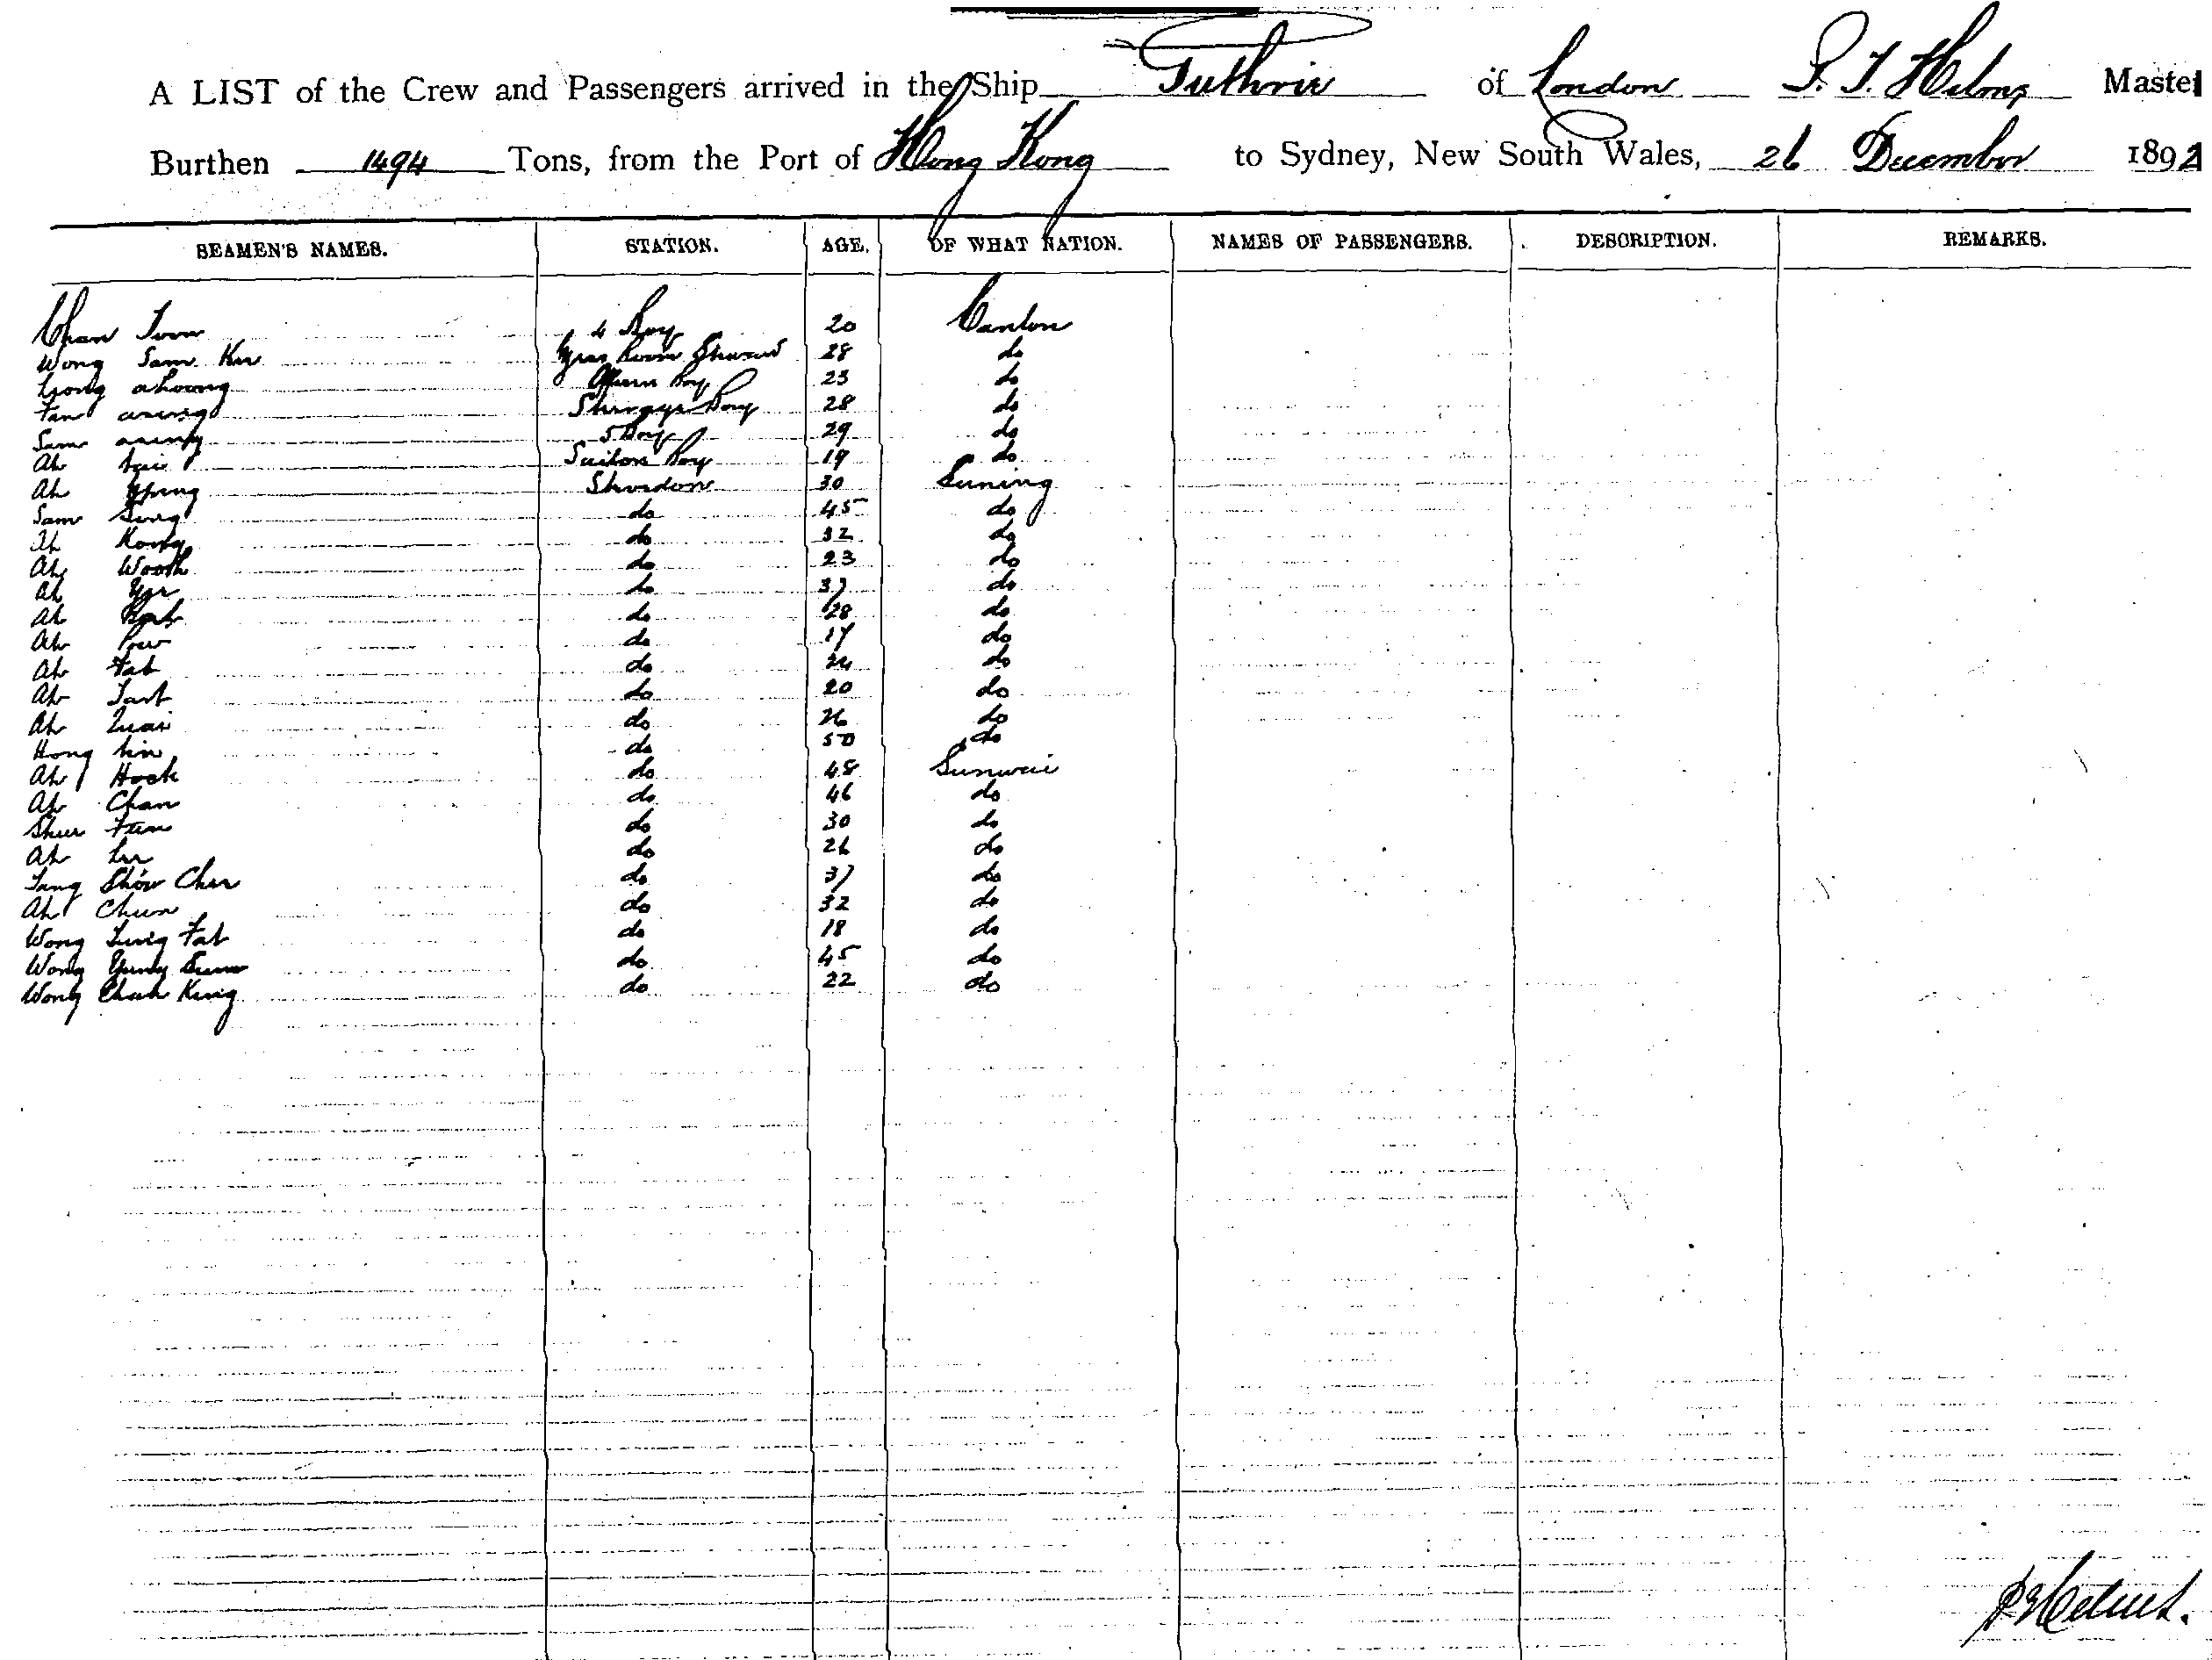 A LIST of the Crew and Passengers arrived in the Ship Guthrie of London Master
Burthen 1494 Tons, from the Port of Hong Kong to Sydney, New South Wales, 26 December 1892
SEAMEN'S NAMES. STATION. AGE. OF WHAT NATION. NAMES OF PASSENGERS. DESCRIPTION. REMARKS.
Chan Toon 4 Boy 20 Canton
Wong Sam Kee Mess Room Steward 28 do
23 do
Boy 28 do
Sam 5 Boy 29 do
Ah Saloon Boy 19 do
Ah 30 Sunning
Sam Sing do 45 do
Ah Kong do 32 do
Ah do 23 do
Ah Yee do 37 do
Ah do 28 do
Ah Pow do 17 do
Ah Fat do 24 do
Ah Tart do 20 do
Ah Quai do 26 do
Hong do 50 do
Ah Hock do 48 Sunwui
Ah Chan do 46 do
Shue do 30 do
Ah Lee do 26 do
Show Chee do 37 do
Ah Chun do 32 do
Wong Fat do 18 do
Wong do 45 do
Wong do 22 do